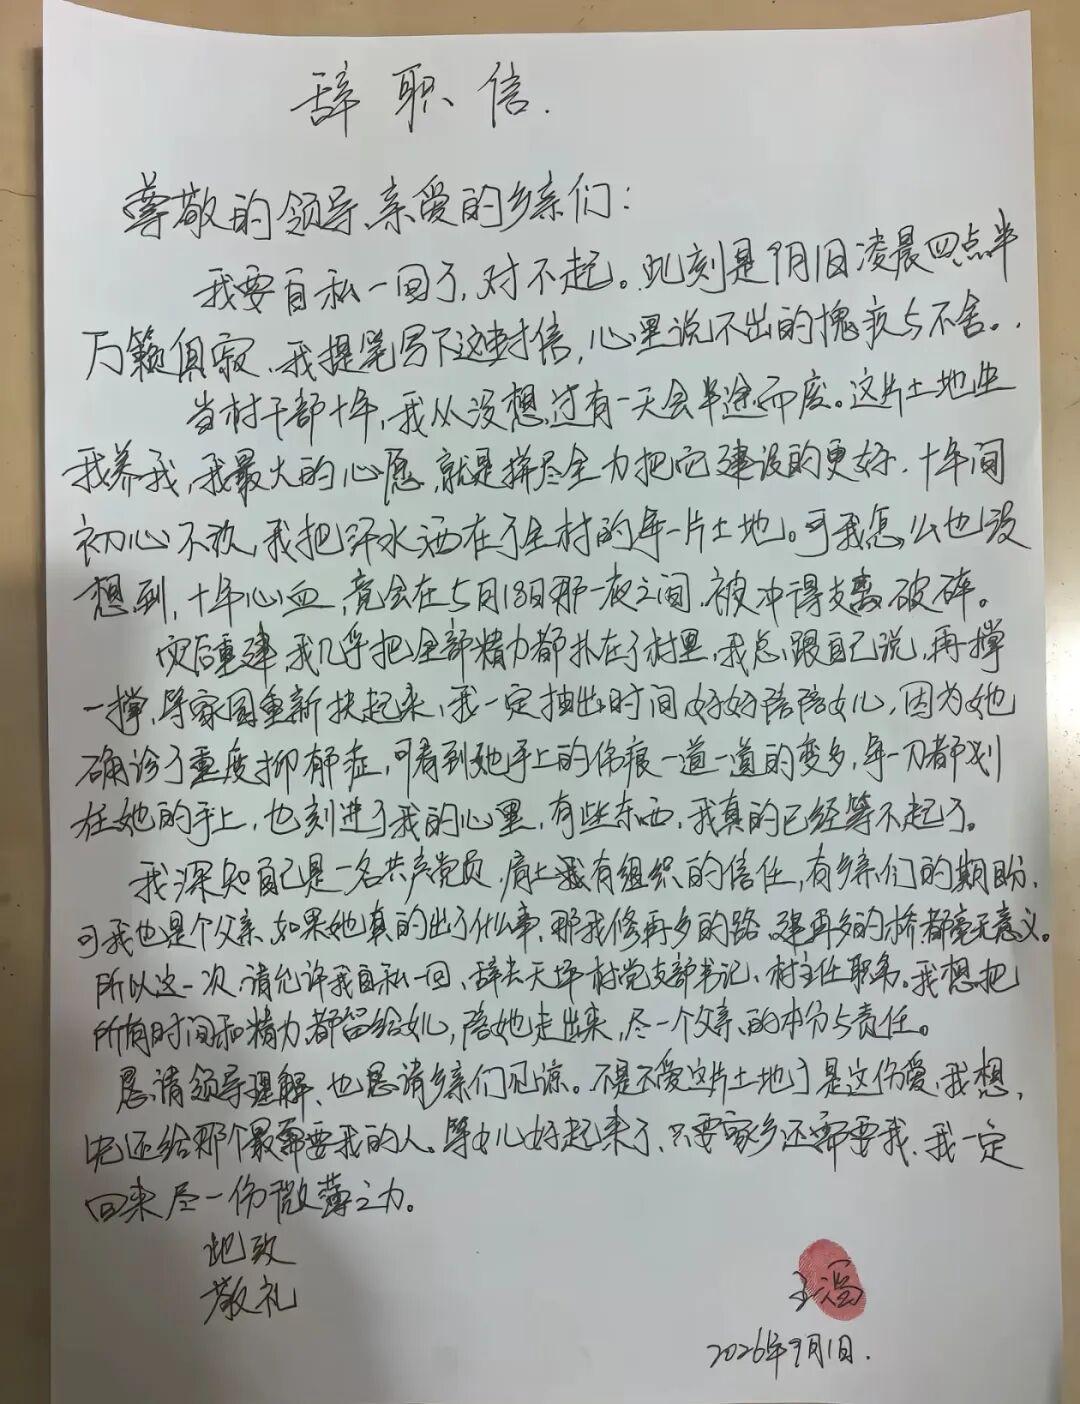 辞职信.
尊敬的领导、亲爱的乡亲们:
我要自私一回了,对不起。此刻是9月1日凌晨四点半
万籁俱寂、我提笔写下这封信,心里说不出的愧疚与不舍。
当村干部十年,我从没想过有一天会半途而废。这片土地生
我养我,我最大的心愿,就是拼尽全力把它建设的更好.十年间
初心不改,我把汗水洒在了全村的每一片土地。可我怎么也没
想到,十年心血,竟会在5月18日那一夜之间、被冲得支离破碎。
灾后重建,我几乎把全部精力都扑在了村里,我总跟自己说,再撑
一撑,等家园重新扶起来,我一定抽出时间好好陪陪女儿,因为她
确诊了重度抑郁症,可看到她手上的伤痕一道一道的变多,每一刀都划
在她的手上,也刻进了我的心里,有些东西,我真的已经等不起了。
我深知自己是一名共产党员,肩上有组织的信任,有乡亲们的期盼.
可我也是个父亲、如果她真的出了什么事、那我修再多的路、建再多的桥都毫无意义。
所以这一次,请允许我自私一回、辞去天坪村党支部书记、村主任职务。我想把
所有时间和精力都留给女儿,陪她走出来,尽一个父亲的本分与责任。
恳请领导理解、也恳请乡亲们见谅。不是不爱这片土地了是这份爱、我想,
先还给那个最需要我的人。等女儿好起来了、只要家乡还需要我、我一定
回来尽一份微薄之力。
此致
敬礼
王冯
2026年9月1日.